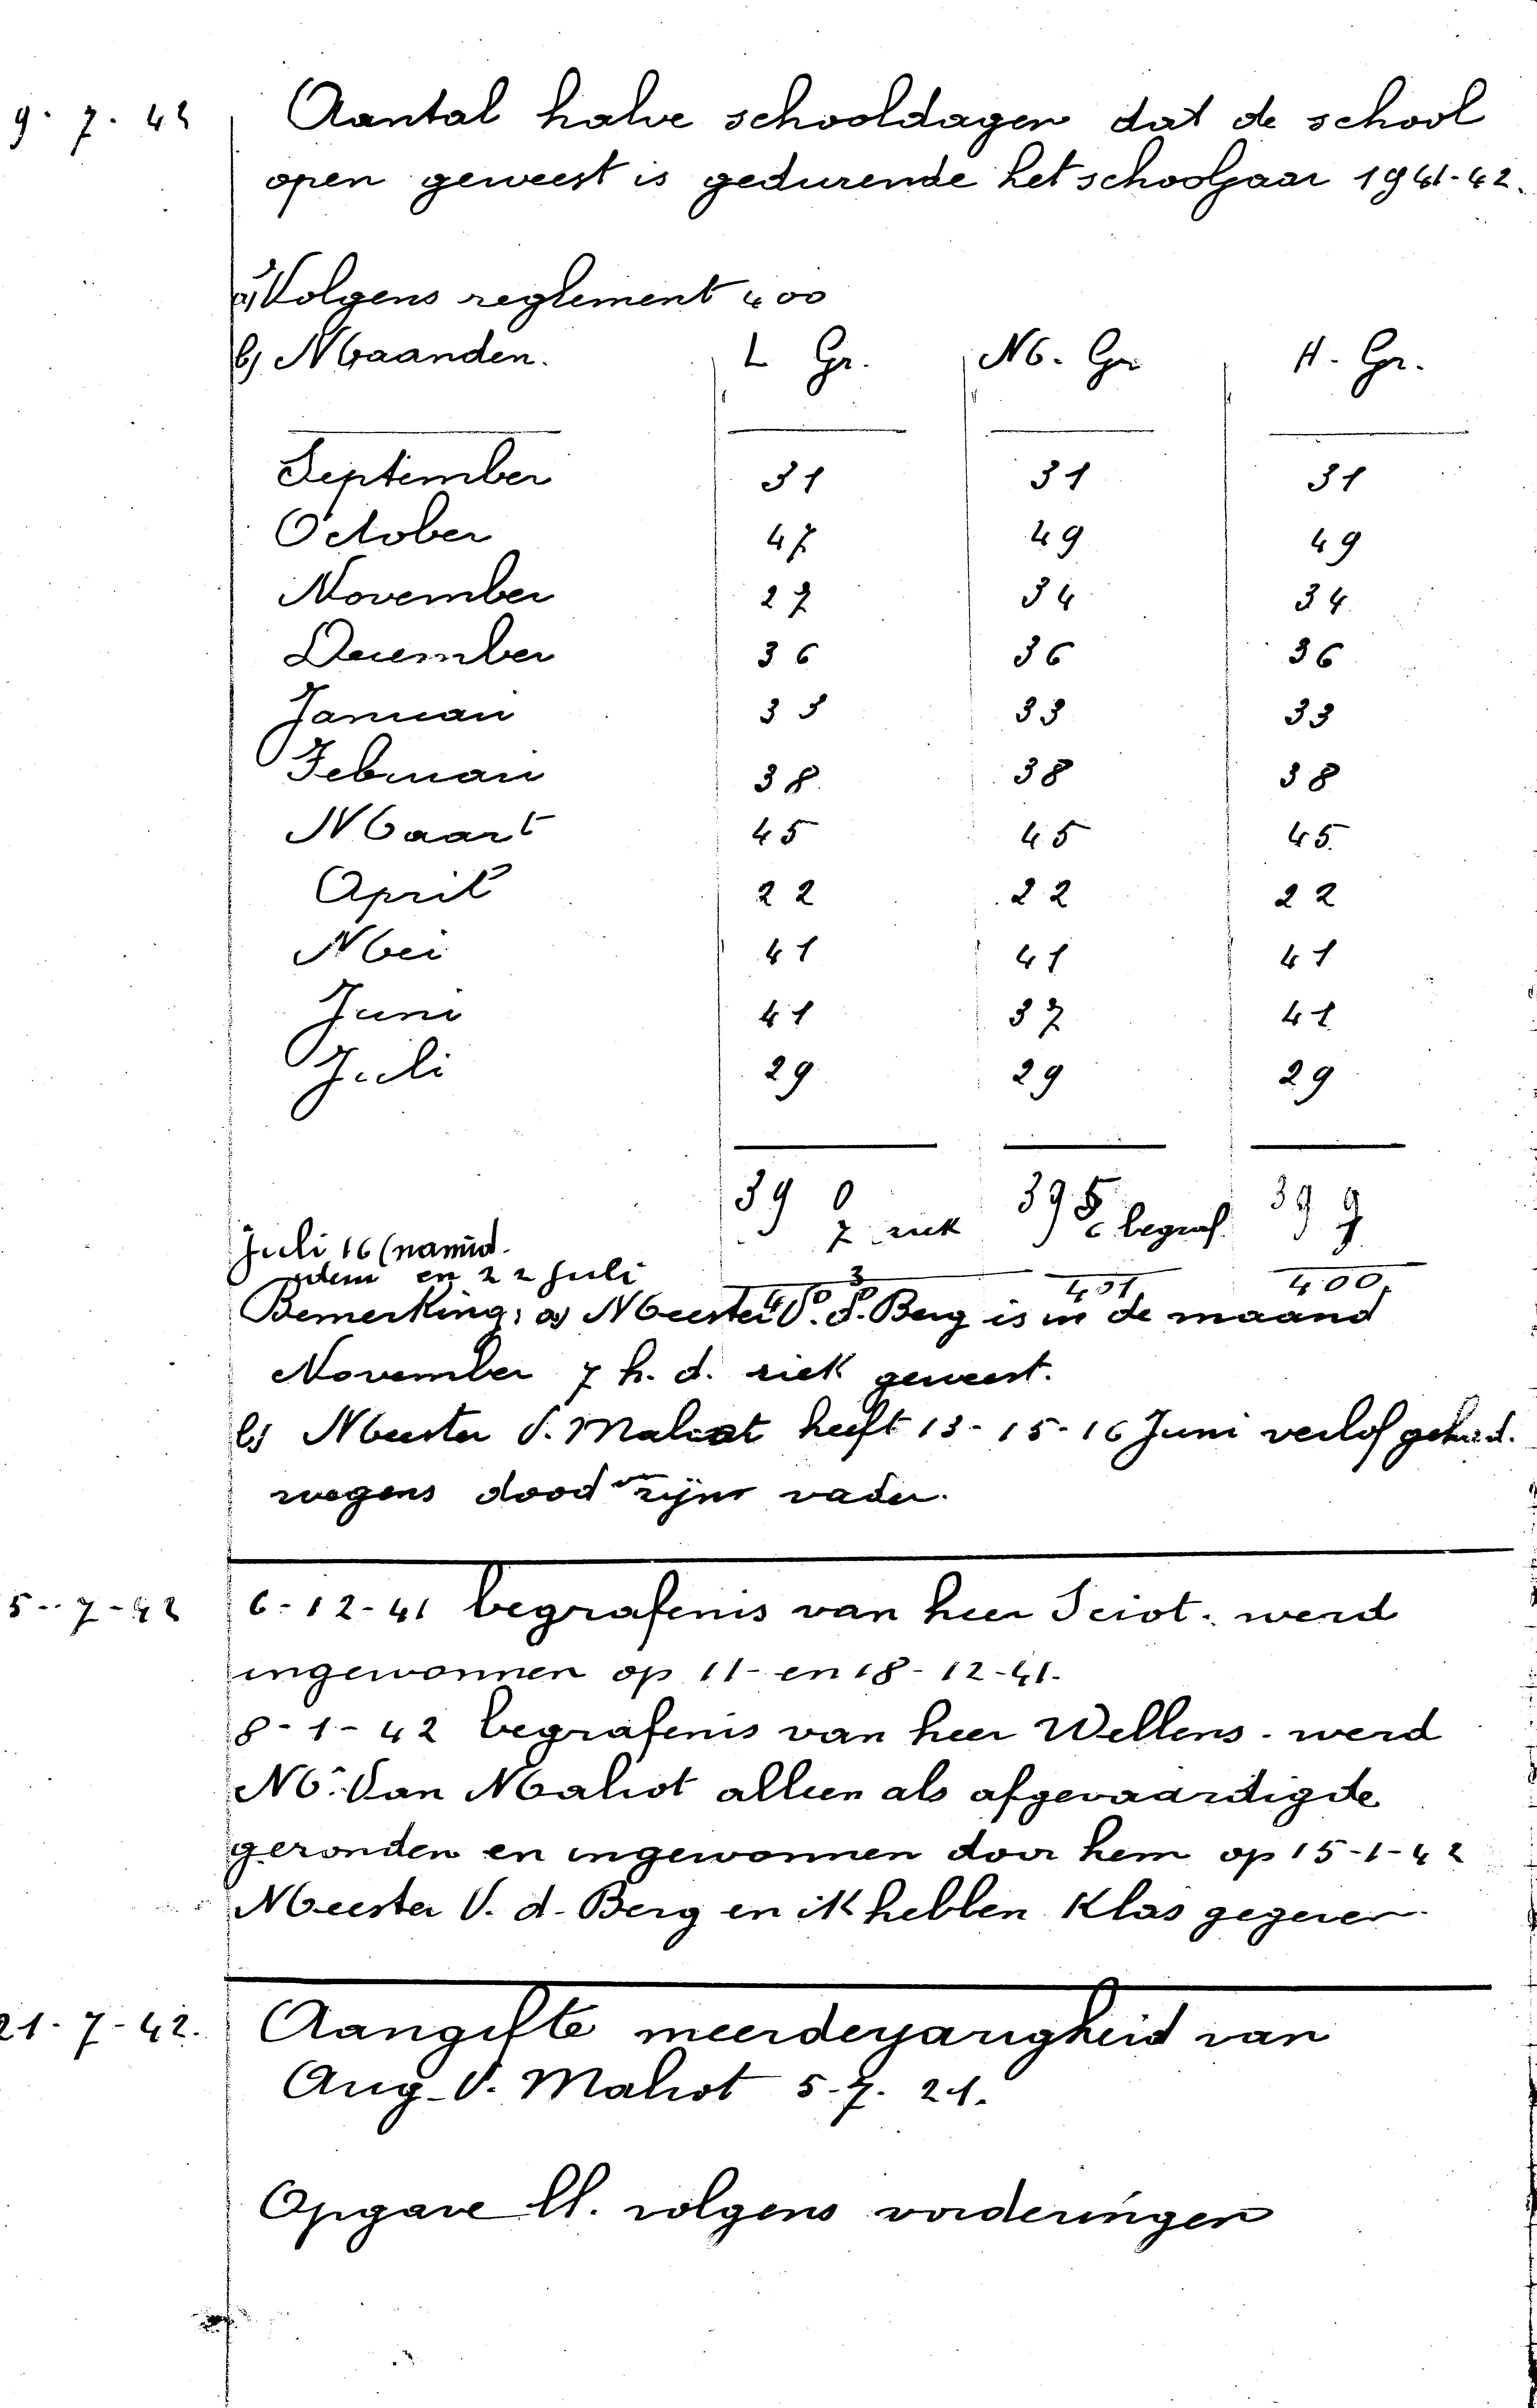 9. 7. 42 Aantal halve schooldagen dat de school
open geweest is gedurende het schooljaar 1941-42.
a) Volgens reglement 400
b) Maanden. L Gr. M. Gr H. Gr.
September 31 31 31
October 47 49 49
November 27 34 34
December 36 36 36
Januari 33 33 33
Februari 38 38 38
Maart 45 45 45
April 22 22 22
Mei 41 41 41
Juni 41 37 41
Juli 29 29 29
390 395 399
7 ziek 6 begraf.
Juli 16 (namid.
idem en 22 Juli
401 400.
Bemerking: a) Meester V. d. Berg is in de maand
November 7 h. d. ziek geweest.
b) Meester V. Maliot heeft 13-15-16 Juni verlof gehad.
wegens dood zijns vader.
5-7-42 6-12-41 begrafenis van heer Sciot. werd
ingewonnen op 11- en 18-12-41.
8-1-42 begrafenis van heer Wellens. werd
Mr. Van Maliot alleen als afgevaardigde
gezonden en ingewonnen door hem op 15-1-42
Meester V. d. Berg en ik hebben klas gegeven.
21-7-42. Aangifte meerderjarigheid van
Aug. V. Maliot 5-7. 21.
Opgave ll. volgens vorderingen